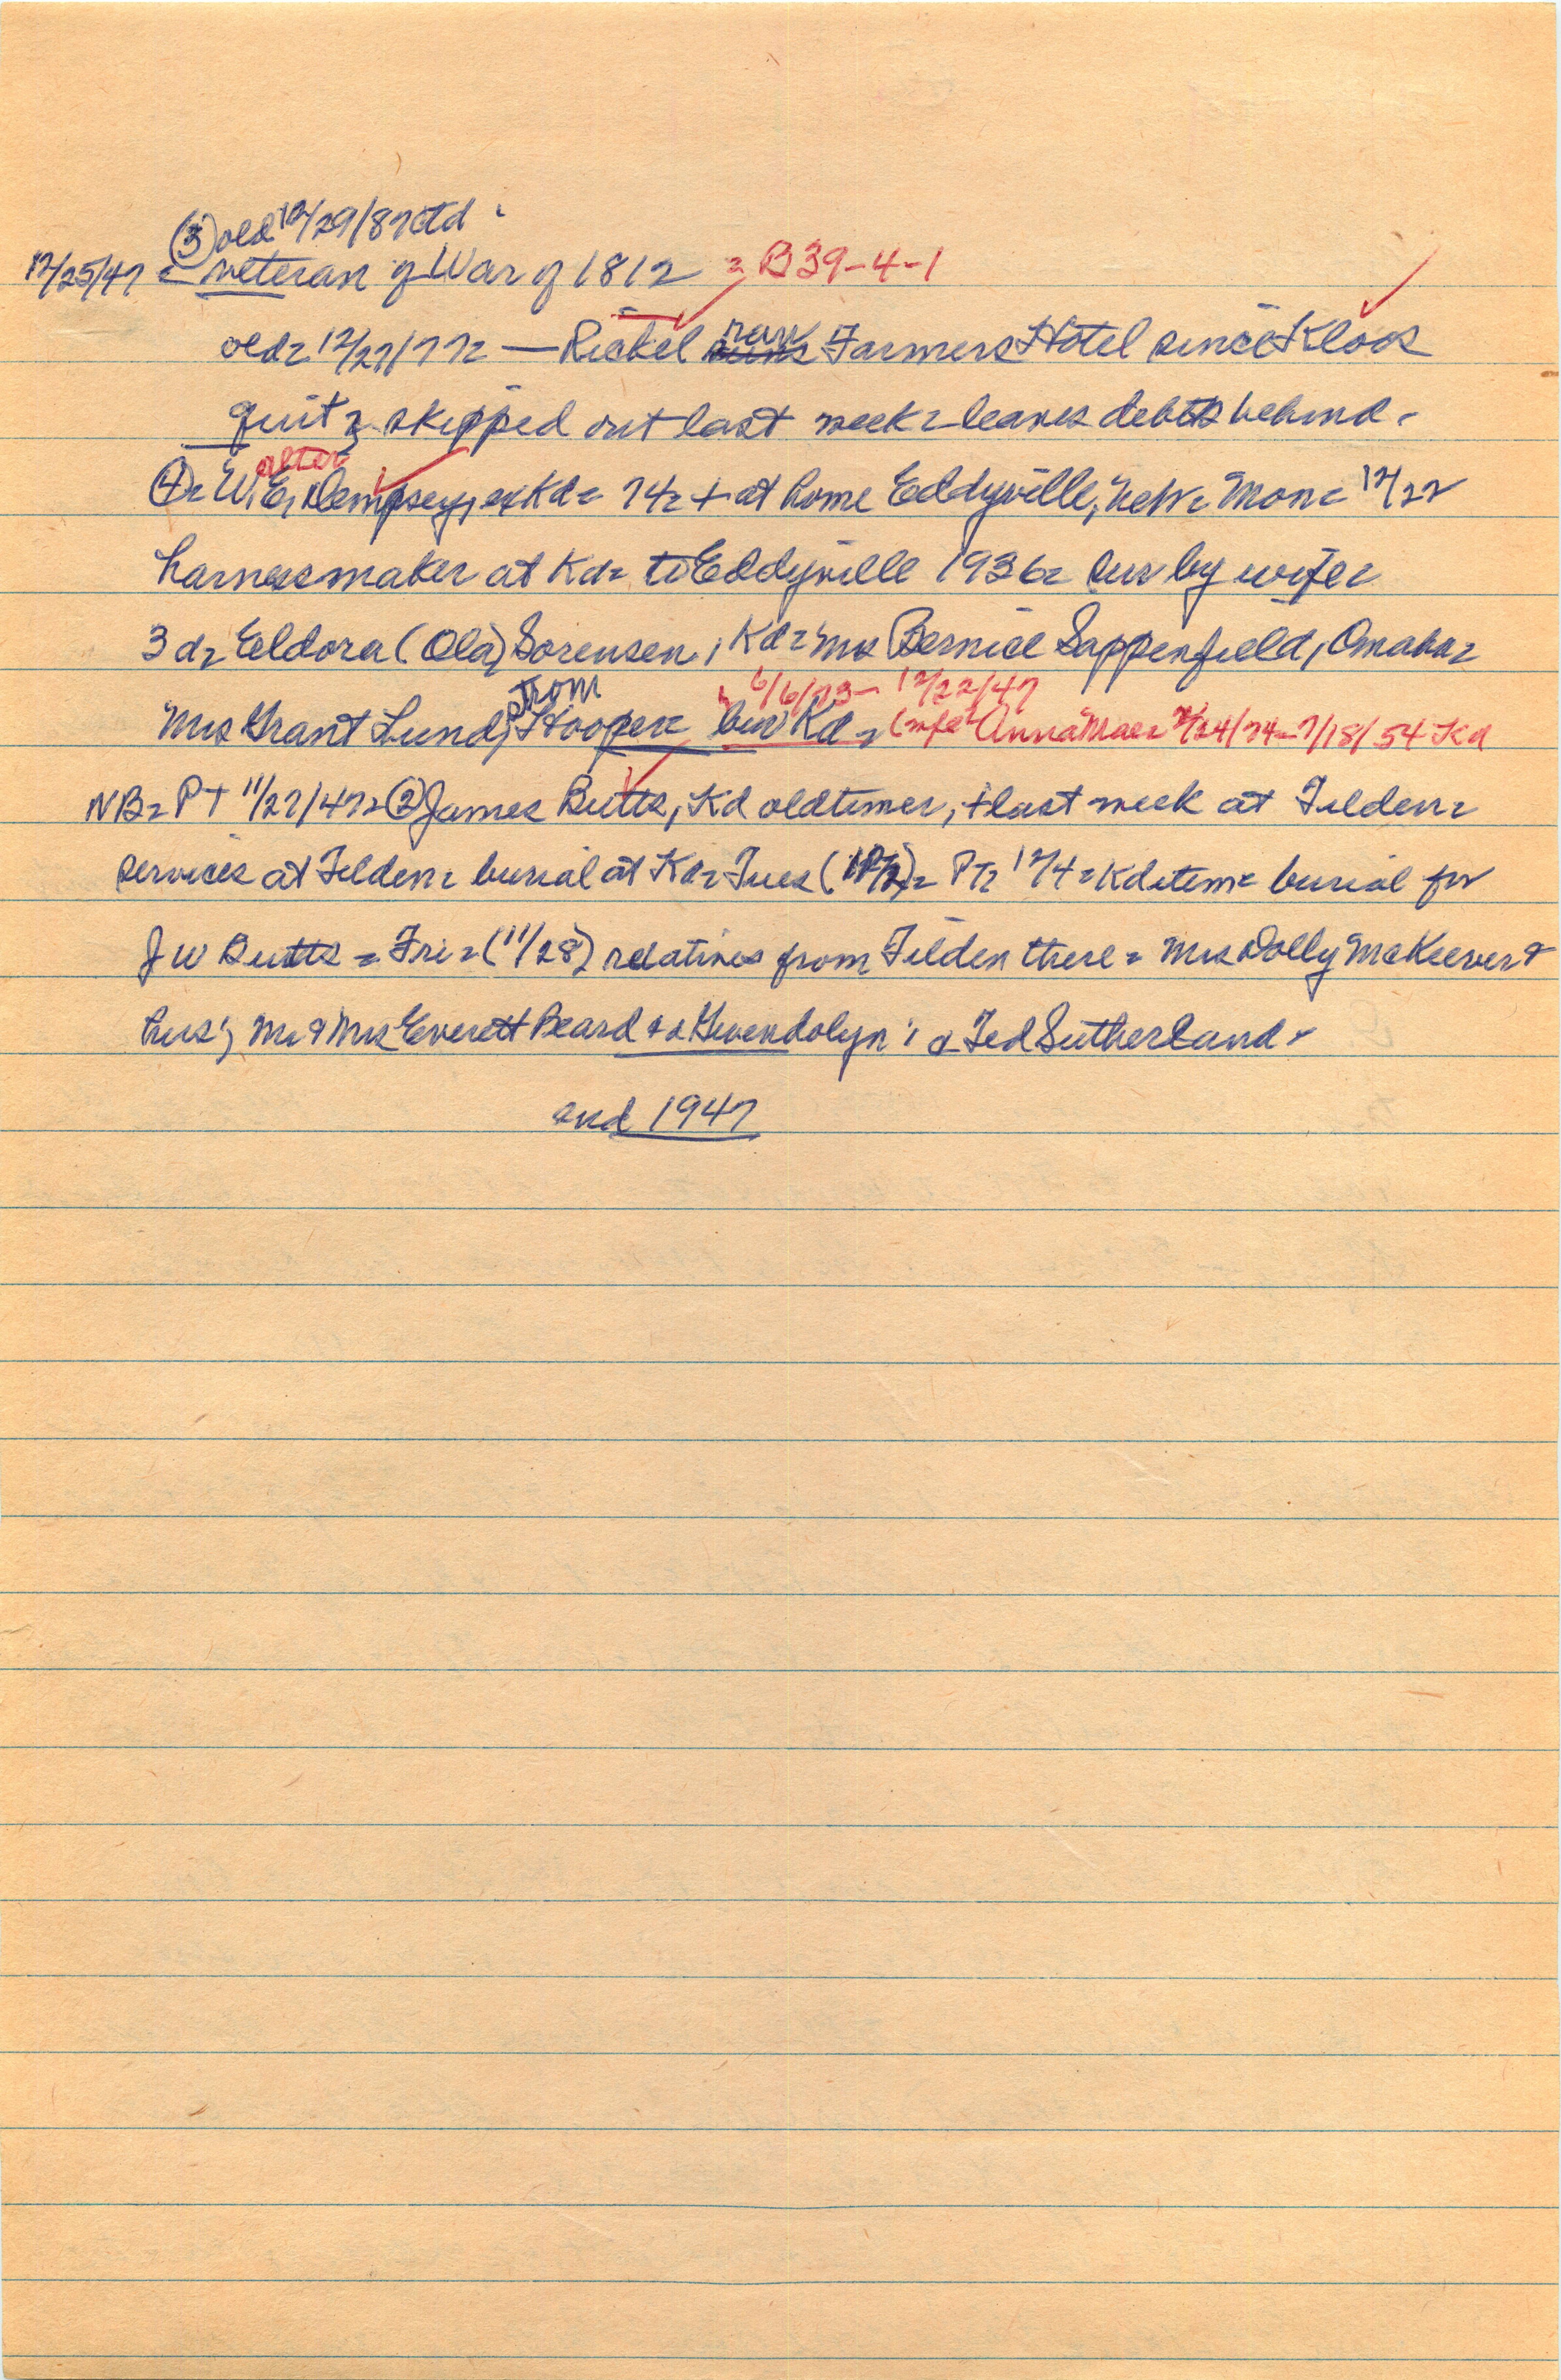 (3) old 12/29/87 ctd.
12/25/47 = veteran of War of 1812 = B39-4-1
old = 12/27/77 = — Rickel ran Farmers Hotel since Kloos
quit = skipped out last week = leaves debts behind.
(4) = Walter E, Dempsey, ex Kd = 74 = + at home Eddyville, Neb = Mon = 12/22
harnessmaker at Kd = to Eddyville 1936 = sur by wife =
3 d = Eeldora (Ola) Sorensen, Kd = Mrs Bernice Sappenfield, Omaha =
Mrs Grant Lundstrom, Hooper = bur Kd = 6/6/73 – 12/22/47 (wife = Anna Mae = 24/74 – 7/18/54 Kd
NB = PT 11/27/47 = (2) James Butts, Kd oldtimer, + last week at Tilden =
services at Tilden = burial at Kd = Tues (12/2) = PT = 12/4 = Kd item = burial for
J W Butts = Fri = (11/28) relatives from Tilden there = Mrs Dolly McKeever &
hus; Mr & Mrs Everett Beard & d Gwendolyn; & Ted Sutherland.
end 1947